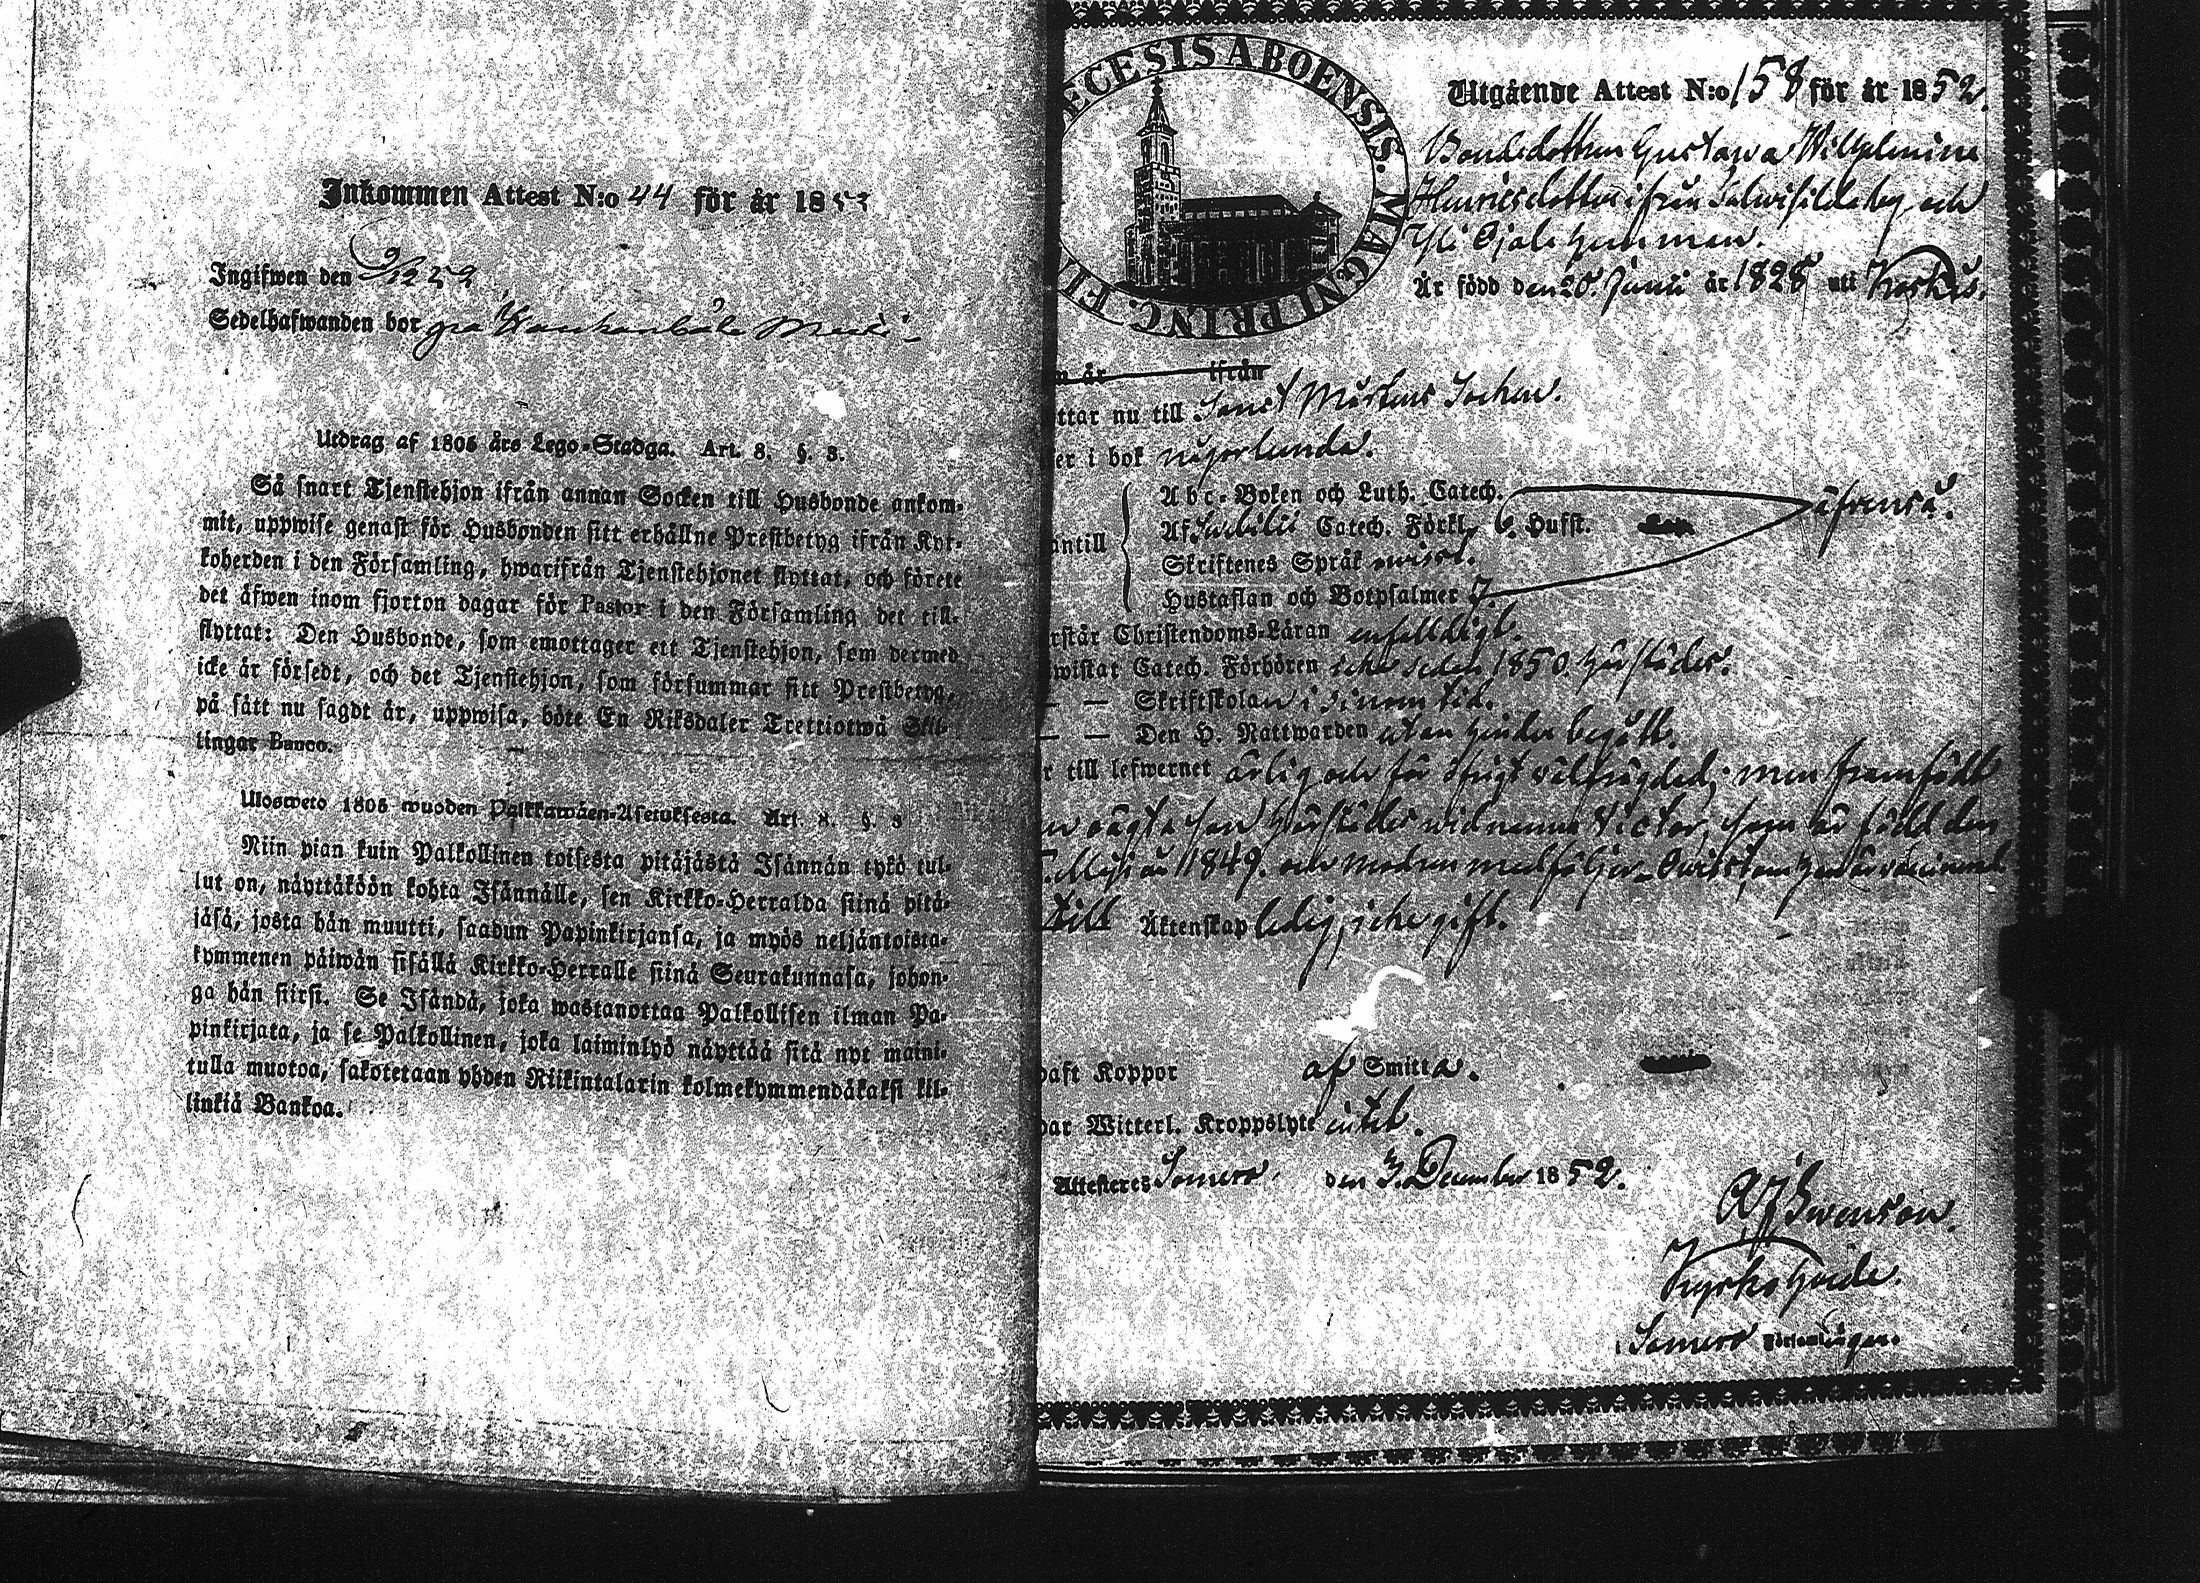 Inkommen Attest N:o 44 för år 1853
Ingifwen den
Sedelhafwanden bor på
Utdrag af 1805 års Lego-Stadga. Art. 8. §. 3.
Så snart Tjenstehjon ifrån annan Socken till Husbonde ankom-
mit, uppwise genast för Husbonden sitt erhållne Prestbetyg ifrån Kyr-
koherden i den Församling, hwarifrån Tjenstehjonet flyttat, och förete
det äfwen inom fjorton dagar för Pastor i den Församling det till-
flyttat: Den Husbonde, som emottager ett Tjenstehjon, som dermed
icke är försedt, och det Tjenstehjon, som försummar sitt Prestbetyg,
på sätt nu sagdt är, uppwisa, böte En Riksdaler Trettiotwå Skil-
lingar Banco.
Ulosweto 1805 wuoden Palkkawäen-Asetuksesta. Art. 8. §. 3
Niin pian kuin Palkollinen toisesta pitäjästä Isännän tykö tul-
lut on, näyttäköön kohta Isännälle, sen Kirkko-Herralda siinä pitä-
jäsä, josta hän muutti, saadun Papinkirjansa, ja myös neljäntoista-
kymmenen päiwän sisällä Kirkko-Herralle siinä Seurakunnasa, johon-
ga hän siirsi. Se Isändä, joka wastanottaa Palkollisen ilman Pa-
pinkirjata, ja se Palkollinen, joka laiminlyö näyttää sitä nyt maini-
tulla muotoa, sakotetaan yhden Riikintalarin kolmekymmendäkaksi kil-
linkiä Bankoa.
ECESIS ABOENSIS. MAGNI PRINC. FI
Utgående Attest N:o 158 för år 1852.
Bondedottren Gustawa Wilhelmina
Henricsdotter ifrån by och
Yli Ojala hemman.
Är född den 20. Junii år 1828 uti Koskis.
n år ifrån
ttar nu till Sanct Mårtens Socken.
er i bok någorlunda.
antill
Abc-Boken och Luth. Catech.
Af Swebilii Catech. Förkl. 6. Hufst.
Skriftenes Språk
Hustaflan och Botpsalmer 7.
rstår Christendoms-Läran enfaldigt.
wistat Catech. Förhören icke sedan 1850. härstädes.
— — Skriftskolan i sinom tid.
— — Den H. Nattwarden utan hinder begått.
r till lefwernet ärlig och för öfrigt wälfrägdad; men framfödt
en oägta son härstädes wid namn Victor, som är född den
Maji år 1849. och modren medföljer
till Äktenskap ledig, icke gift.
haft Koppor af Smitta.
har Witterl. Kroppslyte intet.
Attesteres Somero, den 3. December 1852.
Swenson.
Kyrkoherde.
i Somero Församlingar.